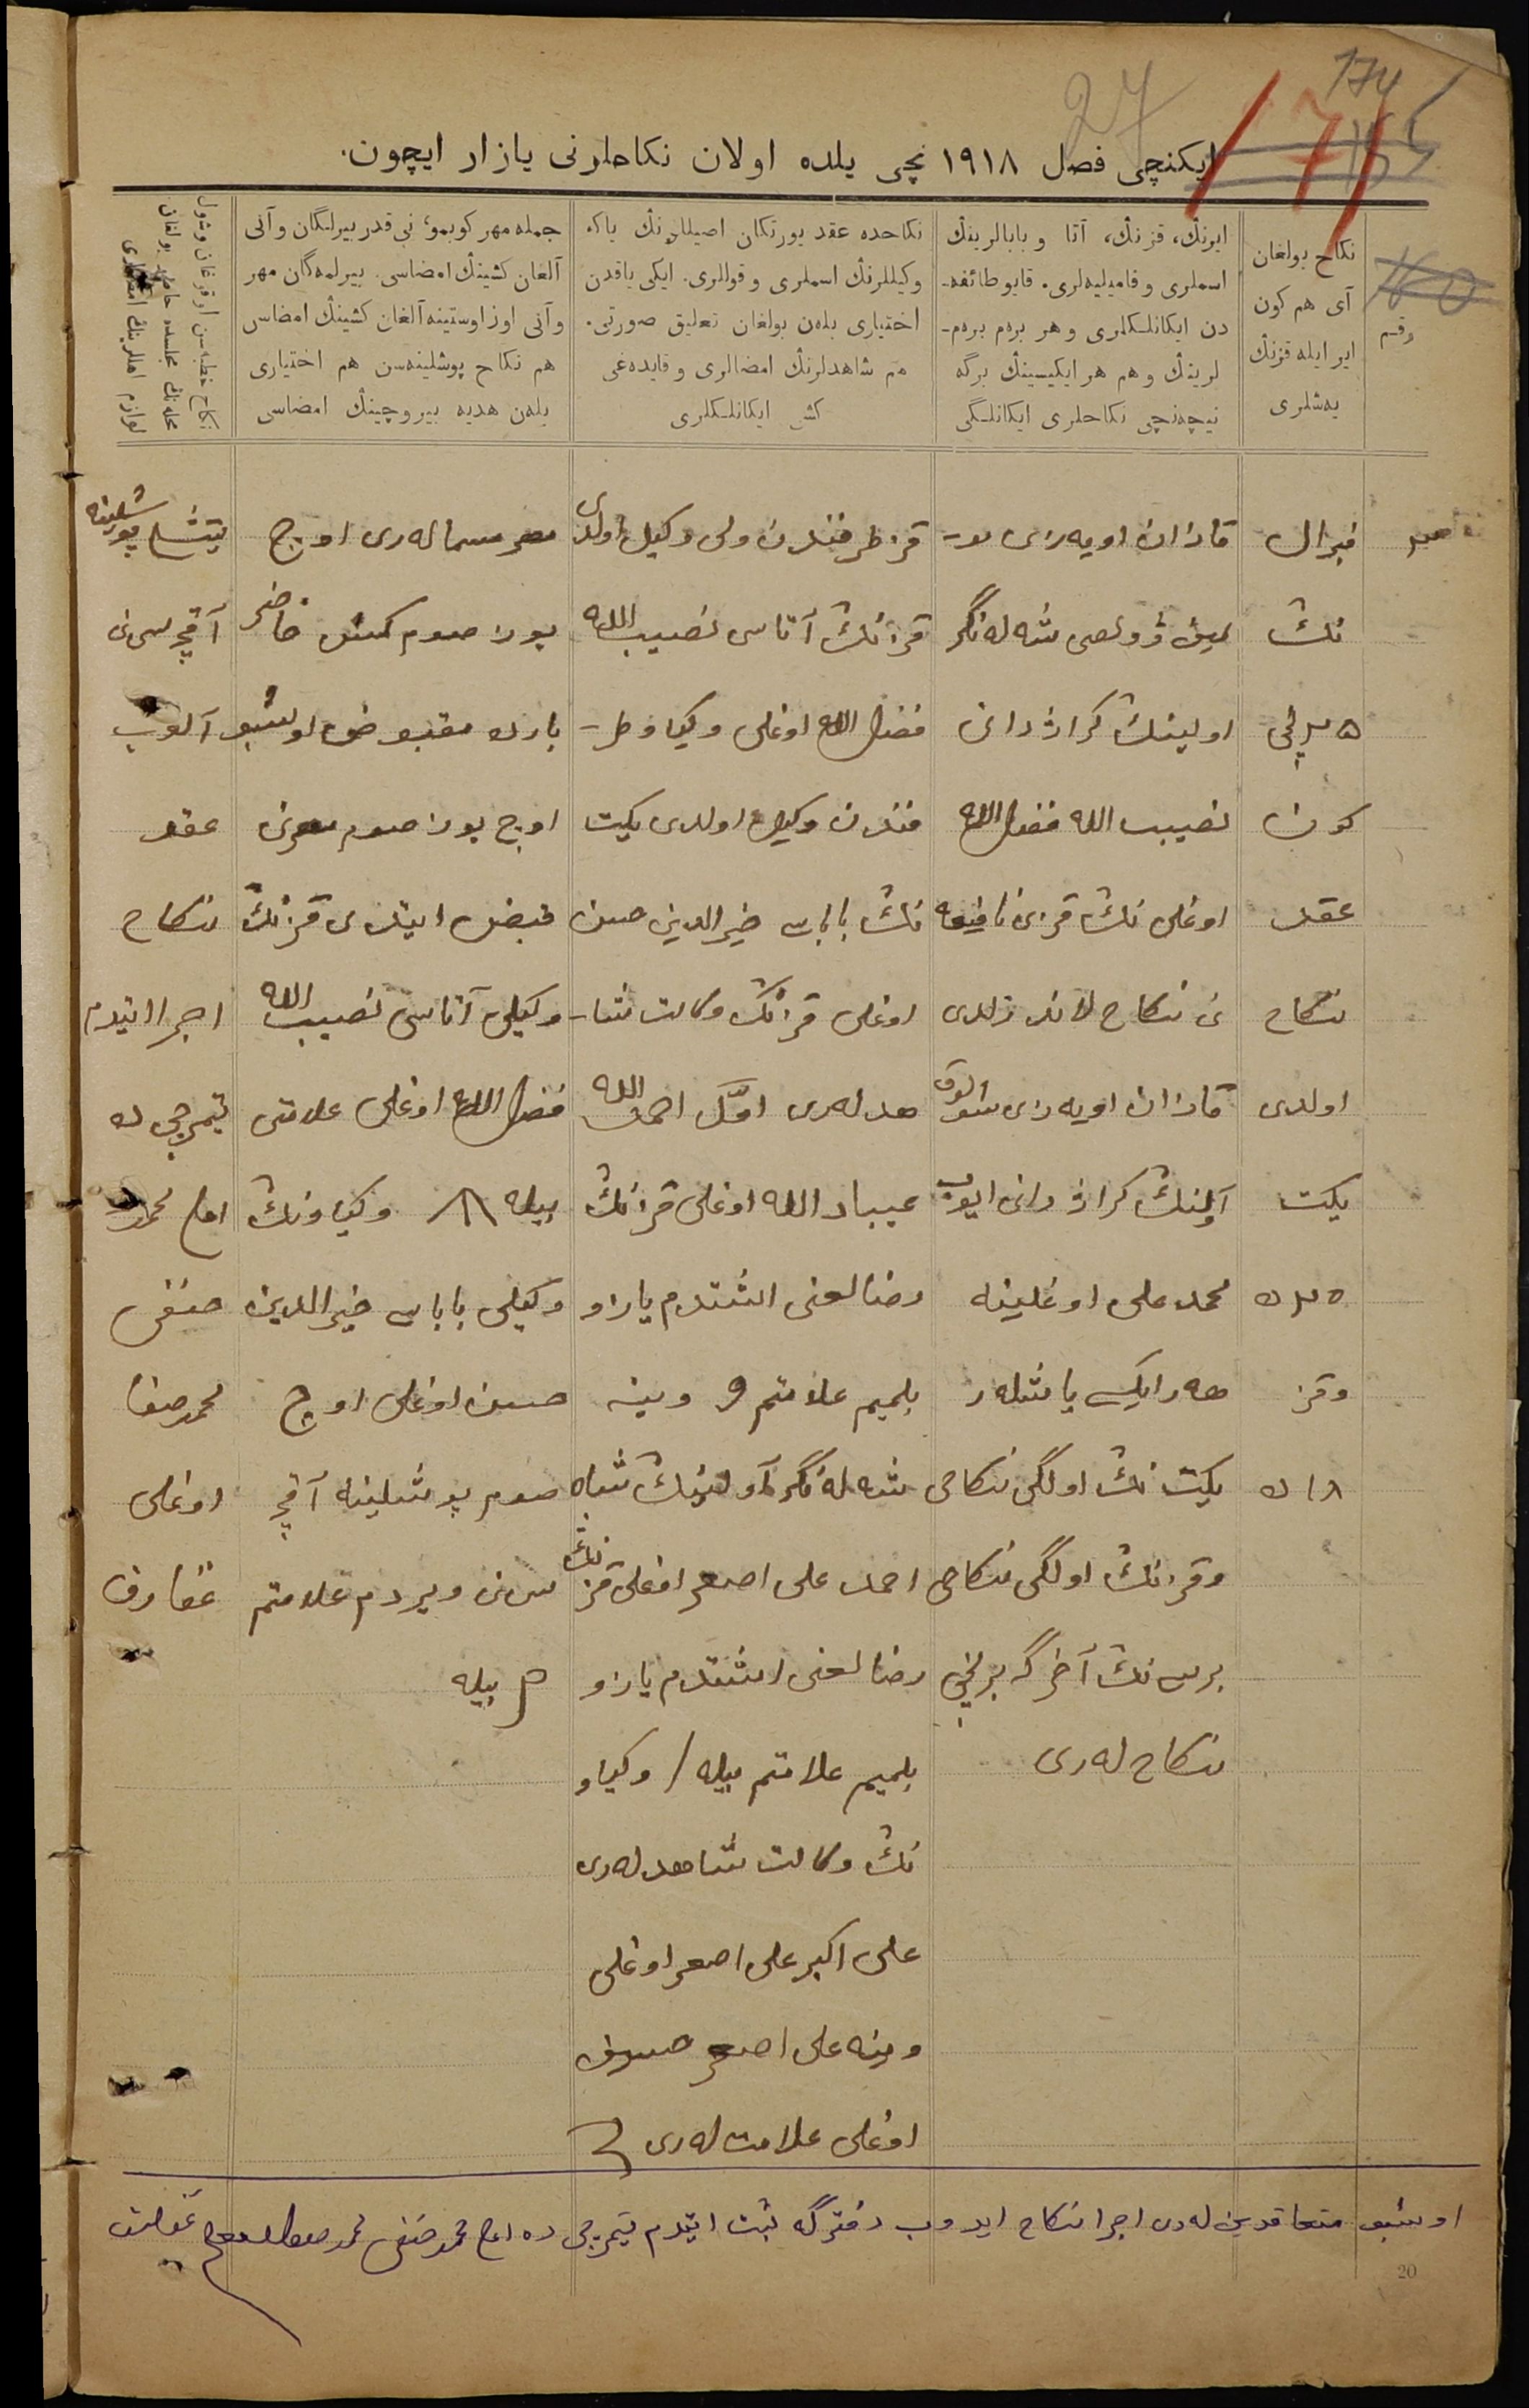 174
27
171
165
ایکنچی فصل ۱۹۱۸ نچی یلده اولان نکاحلرنی یازار ایچون.
رقم
160
نکاح بولغان
آی هم کون
ایر ایله قزنڭ
یه‌شلری
ایرنڭ، قزنڭ، آتا و بابالرینڭ
اسملری و فامیلیه‌لری. قایو طائفه‌-
دن ایکانلکلری و هر برم برم-
لرینڭ و هم هر ایکیسینڭ برگه
نیچه‌نچی نکاحلری ایکانلگی
نکاحده عقد یورتکان اصیللرنڭ یاکه
وکیللرنڭ اسملری و قوللری. ایکی یاقدن
اختیاری بله‌ن بولغان تعلیق صورتی.
هم شاهدلرنڭ امضالری و قایده‌غی
کشی ایکانلکلری
جمله مهر کوبموٴ نی قدر بیرلگان و آنی
آلغان کشینڭ امضاسی. بیرلمه‌گان مهر
و آنی اوز اوستینه آلغان کشینڭ امضاسی
هم نکاح پوشلینه‌سن هم اختیاری
بله‌ن هدیه بیروچینڭ امضاسی
نکاح خطبه‌سن اوقوغان و شول
محله‌نڭ مجلسده حاضر بولغان
لوازم اهللرینڭ امضالری
فبرال
نڭ
۲۵ نچی
کون
عقد
نکاح
اولدی
یکت
۲۵ ده
و قز
۱۸ ده
قازان اویه‌زی
شه‌له‌نگر
اولینڭ کراژدانی
نصیب الله فضل الله
اوغلی نڭ قزی نافیعه
نی نکاح لاندردی
قازان اویه‌زی
آولنڭ کراژدانی ایوب
محمد علی اوغلینه
هه‌ر ایکی یاشله‌ر
یکت نڭ اولگی نکاحی
و قزنڭ اولگی نکاحی
برسی نڭ آخرگه برنچی
نکاح له‌ری
قز طرفندن ولی وکیل اولدی
قزنڭ آتاسی نصیب الله
فضل الله اوغلی و کیاو طر-
فندن وکیل اولدی یکت
نڭ باباسی خیرالدین حسن
اوغلی قزنڭ وکالت شا-
هدله‌ری اوّل احمد الله
عبیاد الله اوغلی قزنڭ
رضالغنی ایشتدم یازو
بلمیم علامتم و ینه
شه‌له‌نگر آولینڭ شاه
احمد علی اصغر اوغلی قزنڭ
رضالغنی ایشتدم یازو
بلمیم علامتم بیله / و کیاو
نڭ وکالت شاهدله‌ری
علی اکبر علی اصغر اوغلی
و ینه علی اصغر حسین
اوغلی علامت له‌ری
مهر مسماله‌ری اوچ
یوز صوم کمش حاضر
بارده مقبوض اوشبو
اوچ یوز صوم مهرنی
قبض ایتدی قزنڭ
وکیلی آتاسی نصیب الله
فضل الله اوغلی علامتی
بیله و کیاونڭ
وکیلی باباسی خیرالدین
حسن اوغلی اوچ
صوم پوشلینه آقچه
سی نی ویردم علامتم
بیله
یتشلی پوشلینه
آقچه‌سی نی
آلوب
عقد
نکاح
اجرا ایتدم
تیمرچی ده
امام محمد
حنفی
محمد صفا
اوغلی
غفاروف
اوشبو متعاقدین له‌ری اجرا نکاح ایدوب دفترگه ثبت ایتدم تیمرچی ده امام محمد حنفی محمد صفا
20